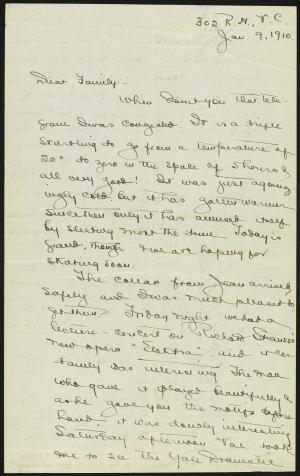 302 R.H., V.C.
Jan. 9, 1910.
Dear Family:-
When I sent you that tele-
gram I was congealed. It is a trifle
startling to go from a temperature of
20° to zero in the space of 5 hours &
all very good! It was just agoniz-
ingly cold but it has gotten warmer
since then only it has amused itself
by sleeting most the time. Today is
grand, though and we are hoping for
skating soon.
The collar from Jean arrived
safely and I was much pleased to
get them. Friday night we had a
lecture-concert on Richard Strauss's
new opera "Elektra", and it cer-
tainly was interesting. The man
who gave it played beautifully &
as he gave you the motifs before
hand, it was doubly interesting
Saturday afternoon Val took
me to see the Yale Dramatic